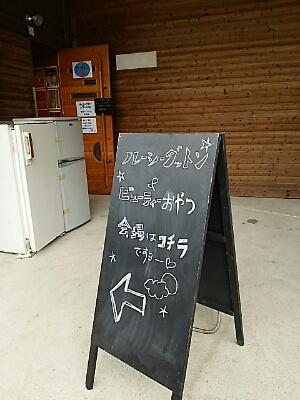 フルーシーダットン
ビューティーおやつ
会場はコチラ
ですョー